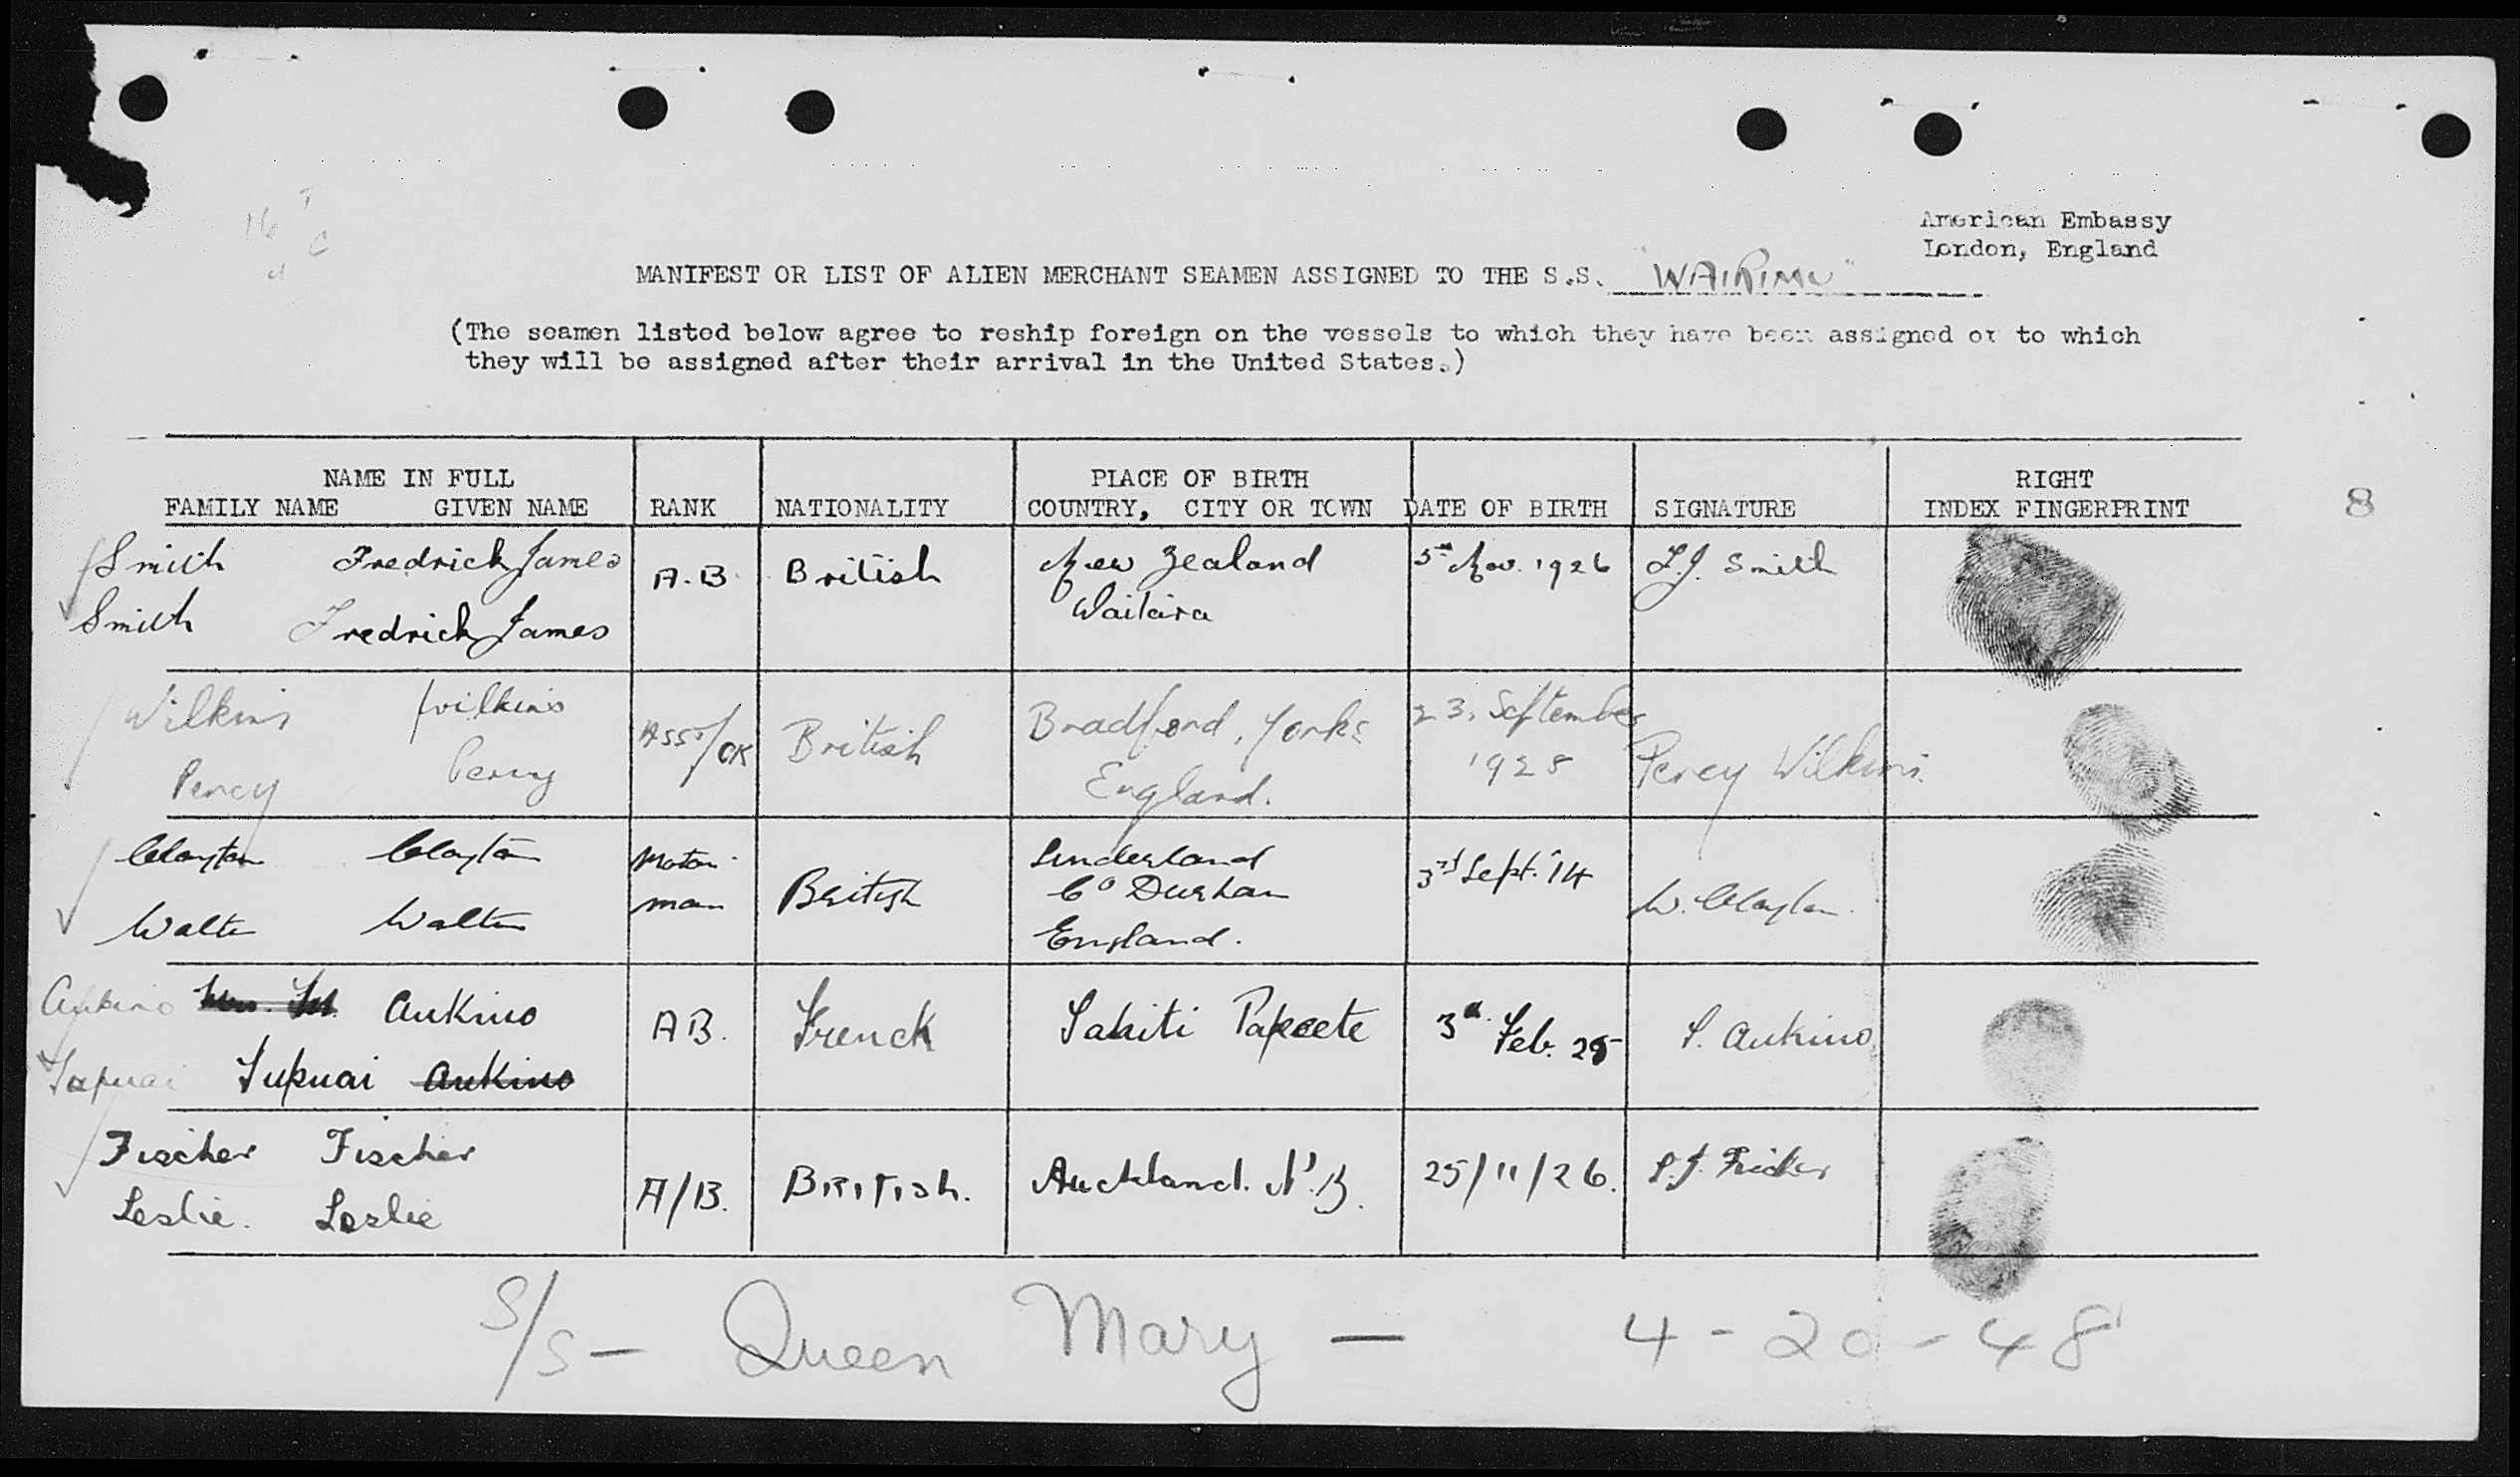 American Embassy
London, England
MANIFEST OR LIST OF ALIEN MERCHANT SEAMEN ASSIGNED TO THE S.S. "WAIRIMU"
(The seamen listed below agree to reship foreign on the vessels to which they have been assigned or to which
they will be assigned after their arrival in the United States.)
NAME IN FULL PLACE OF BIRTH RIGHT
FAMILY NAME GIVEN NAME RANK NATIONALITY COUNTRY, CITY OR TOWN DATE OF BIRTH SIGNATURE INDEX FINGERPRINT
8
Smith Fredrick James A.B. British New Zealand 5th Nov. 1926 F.J. Smith
Smith Fredrick James Waitara
Wilkins Wilkins Asst/CK British Bradford, Yorks 23. September
Percy Percy England. 1928 Percy Wilkins.
Clayton Clayton Motor- British Sunderland 3rd Sept. '14 W. Clayton.
Walter Walter man Co Durham
England.
Aukino Aukino AB. French Tahiti Papeete 3rd Feb. 25 T. Aukino
Tupuai Tupuai Aukino
Fischer Fischer A/B. BRITISH. Auckland. N.Z. 25/11/26.
Leslie. Leslie
S/S - Queen Mary - 4-20-48